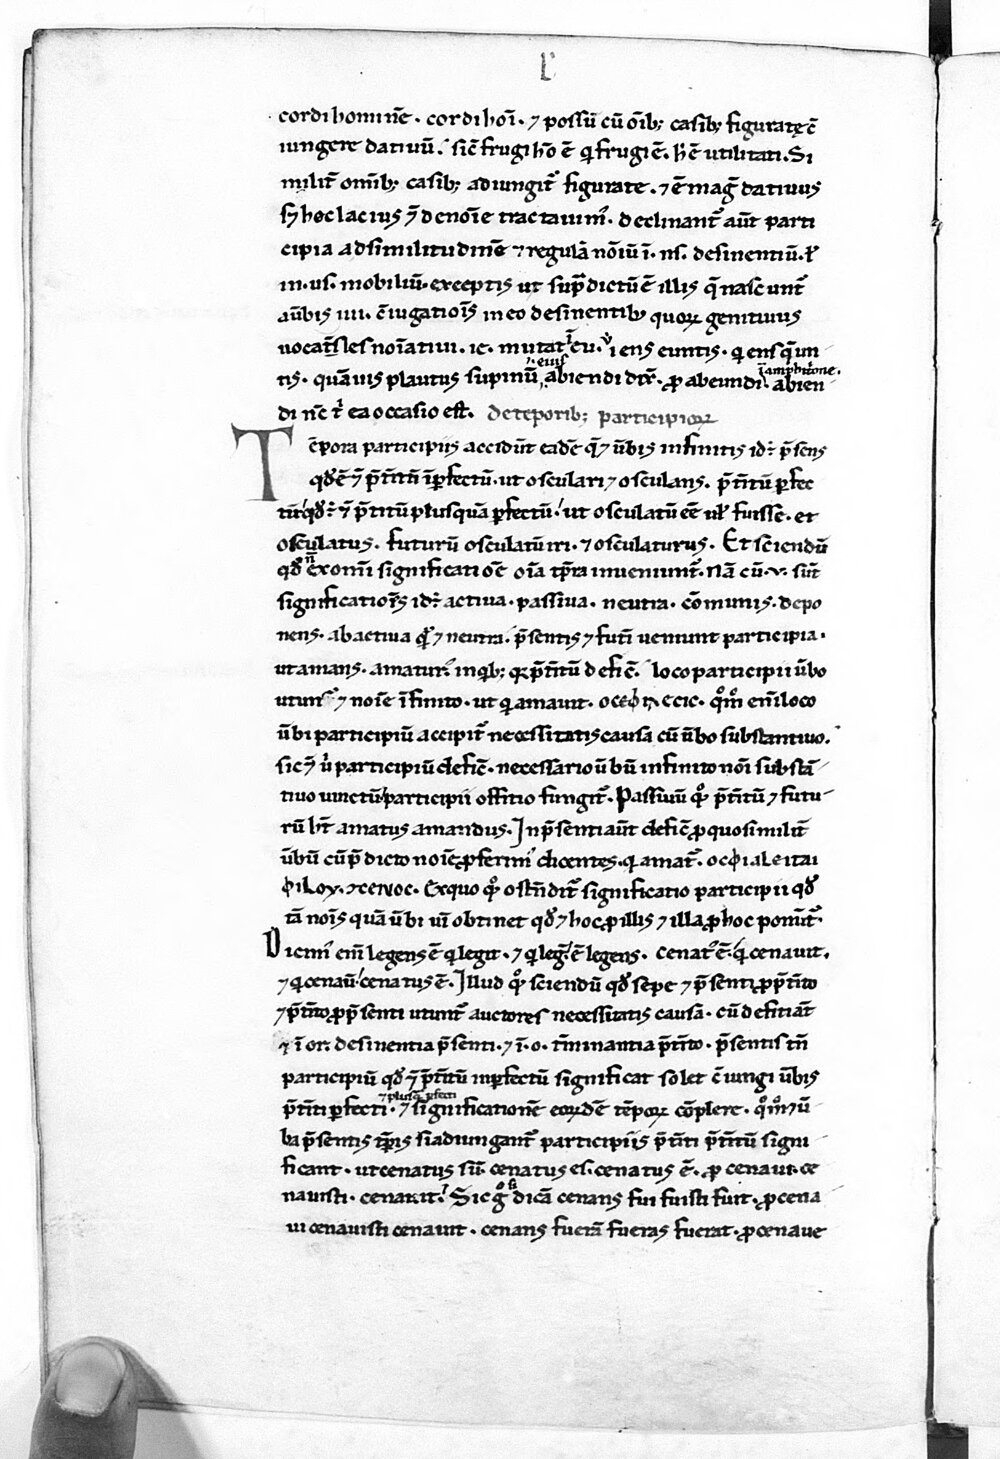 L
cordi homine͞. cordi hoı͞. ⁊ possu͞ cu͞ o͞ib; casib; figurate ͞e
iungere datiuu͞. sic͞ frugi ho͞ e͞ q̄ frugi e͞. h̄ e͞ utilitati. Si
milit͛ omīb; casib; adiungit͛ figurate. ⁊ e͞ mag͞ datiuus
s; hoc lacius ⁊̄ de noı͞e tractauim᾽. declinant͛ aut͞ parti
cipia ad similitudine͞ ⁊ regula͞ noı͞u͞ ı͞. ns. desinentiu͞. ł
in. us. mobiliu͞. exceptis ut sup͞ dictu͞ e͞ illis q̄ nascunt͛
a u͞bis iiii. c͞iugatio͞is in eo desinentib; quoꝝ genitiuus
uocat͞les noı͞atiui. ie. mutat ı͞ eu. ut iens euntis. quiens q̄un
tis. qua͞uis plautus supinu͞ eius abiendi dix͛. ꝓ abeundi. ı͞ amphit͛one. abien
di n͞c t᾽ ea occasio est. de te͞porib; participioꝝ
Te͞pora participiis accidu͞t eade͞ q̄ ⁊ u͞bis infinitis id͛. p͞sens
qđ e͞ ⁊ p͞t͛itu͞ ı͞ꝑfectu͞. ut osculari ⁊ osculans. p͞t͛itu͞ ꝑfec
tu͞ qđ ÷ ⁊ p͞t͛itu͞ plusqua͞ ꝑfectu͞. ut osculatu͞ e͞e ul᾽ fuisse. et
osculatus. futuru͞ osculatu͞ iri. ⁊ osculaturus. Et sciendu͞
qđ n͞ ex omı͞ significatio͞e o͞ia t͞pra inueniunt͛. Na͞ cu͞. v. su͞t
significatio͞is id͛. actiua. passiua. neutra. co͞munis. depo
nens. ab actiua q͛ ⁊ neutra. p͞sentis ⁊ fut͛i ueniunt participia.
ut amans. amatur᾽. in qb; q͛ p͞t͛itu͞ defic͛. loco participii u͞bo
utim᾽ ⁊ noı͞e ı͞finito. ut q͛ amauit. ΟϹ ΕΦΙΛΗϹΕ. q͛m eni͞ loco
u͞bi participiu͞ accipit͛ necessitatis causa cu͞ u͞bo substantiuo.
sic ⁊ u͛ participiu͞ defic͛. necessario u͞bu͞ infinito no͞i substa͞
tiuo uinctu͞ participii offitio fungit͛. Passiuu͞ q͛ p͞t͛itu͞ ⁊ futu
ru͞ h͞t amatus amandus. In p͞senti aut͞ defic͛ ꝓ quo similit͛
u͞bu͞ cu͞ p͞dicto noı͞e ꝓferim᾽ dicentes. q͛ amat͛. ΟϹ ΦΙΛΕΙΤΑΙ
ΦΙΛΟΥΜΕΝΟϹ. Exquo q͛ oste͞dit͛ significatio participii qđ
ta͞ no͞is qua͞ u͞bi uı͞ obtinet qđ ⁊ hoc ꝓ illis ⁊ illa ꝓ hoc ponu͞t͛.
Dicim᾽ eni͞ legens e͞ q͛ legit. ⁊ q͛ leg͛ e͞ legens. cenat᾽ e͞. q͛ cenauit.
⁊ q͛ cenau͞ cenatus e͞. Illud q͛ sciendu͞ qđ sepe ⁊ p͞senti ꝓ p͞t͛ito
⁊ p͞t͛ito ꝓ p͞senti utunt͛ auctores necessitatis causa. cu͞ defitia͞t
⁊ ı͞ or. desinentia p͞senti. ⁊ ı͞. o. t͛minantia p͞t͛ito. p͞sentis t͞n
participiu͞ qđ ⁊ p͞t͛itu͞ inꝑfectu͞ significat solet c͞iungi u͞bis
p͞t͛iti ꝑfecti. ⁊ plusq͛ ꝑfecti ⁊ significatione͞ eoꝝde͞ te͞poꝝ co͞plere. q͛m ⁊ u͞
ba p͞sentis t͞pris si adiungant͛ participiis p͞t͛iti p͞t͛itu͞ signi
ficant. ut cenatus su͞. cenatus es. cenatus e͞. ꝓ cenaui. ce
nauisti. cenauit. Sic g͛ si dica͞ cenans fui fuisti fuit. ꝓ cena
ui cenauisti cenauit. cenans fuera͞ fueras fuerat. ꝓ cenaue